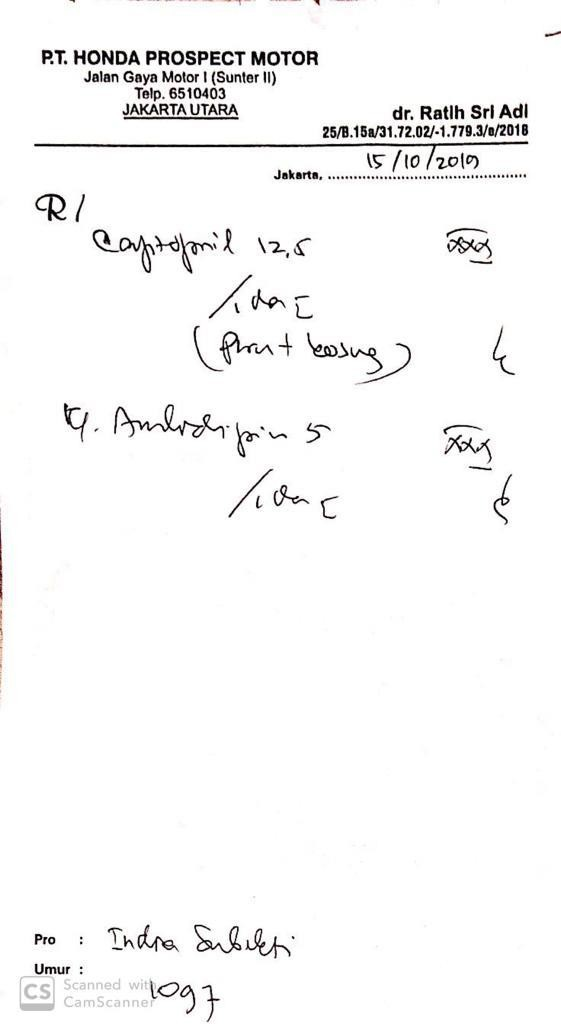 P.T. HONDA PROSPECT MOTOR
Jalan Gaya Motor I (Sunter II)
Telp. 6510403
JAKARTA UTARA
dr. Ratih Sri Adi
25/B.15a/31.72.02/-1.779.3/e/2016
Jakarta, 15/10/2019
R/
Captopril 12,5 xxx
(Perut kosong)
Amlodipin 5 xxx
Pro : Indra Subekti
Umur :
1097
CS Scanned with
CamScanner